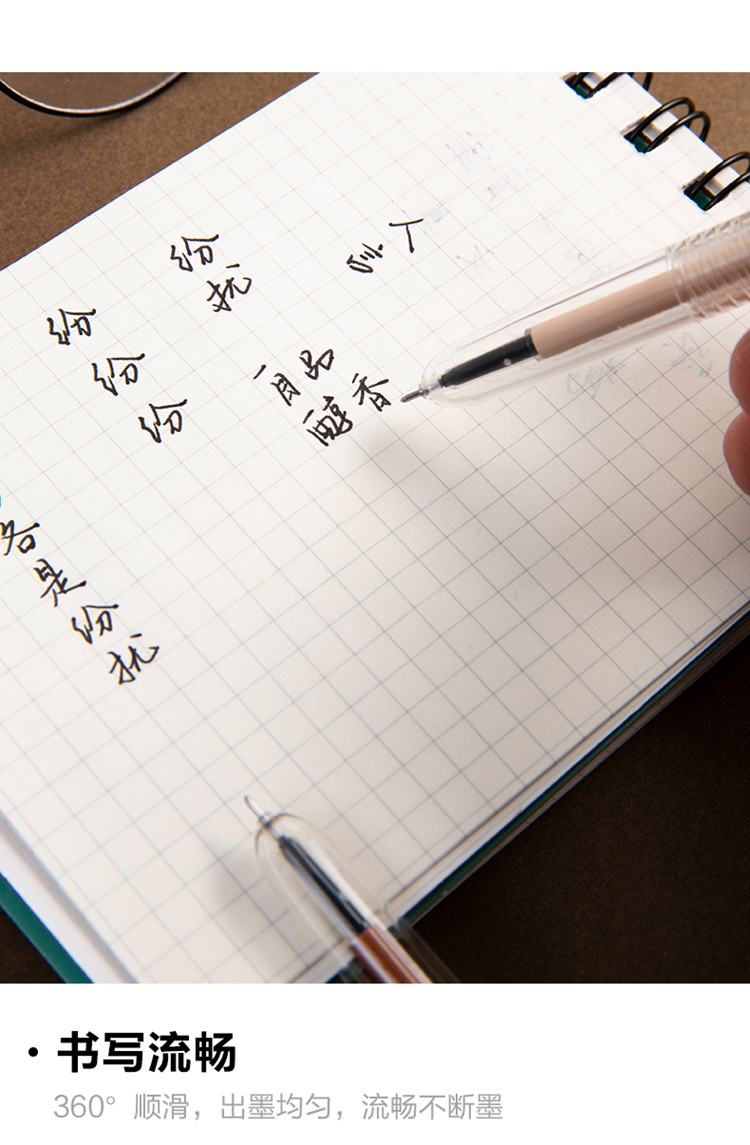 纷
扰
纷
纷
纷
各
是
纷
扰
人
品
醇
香
·书写流畅
360° 顺滑，出墨均匀，流畅不断墨